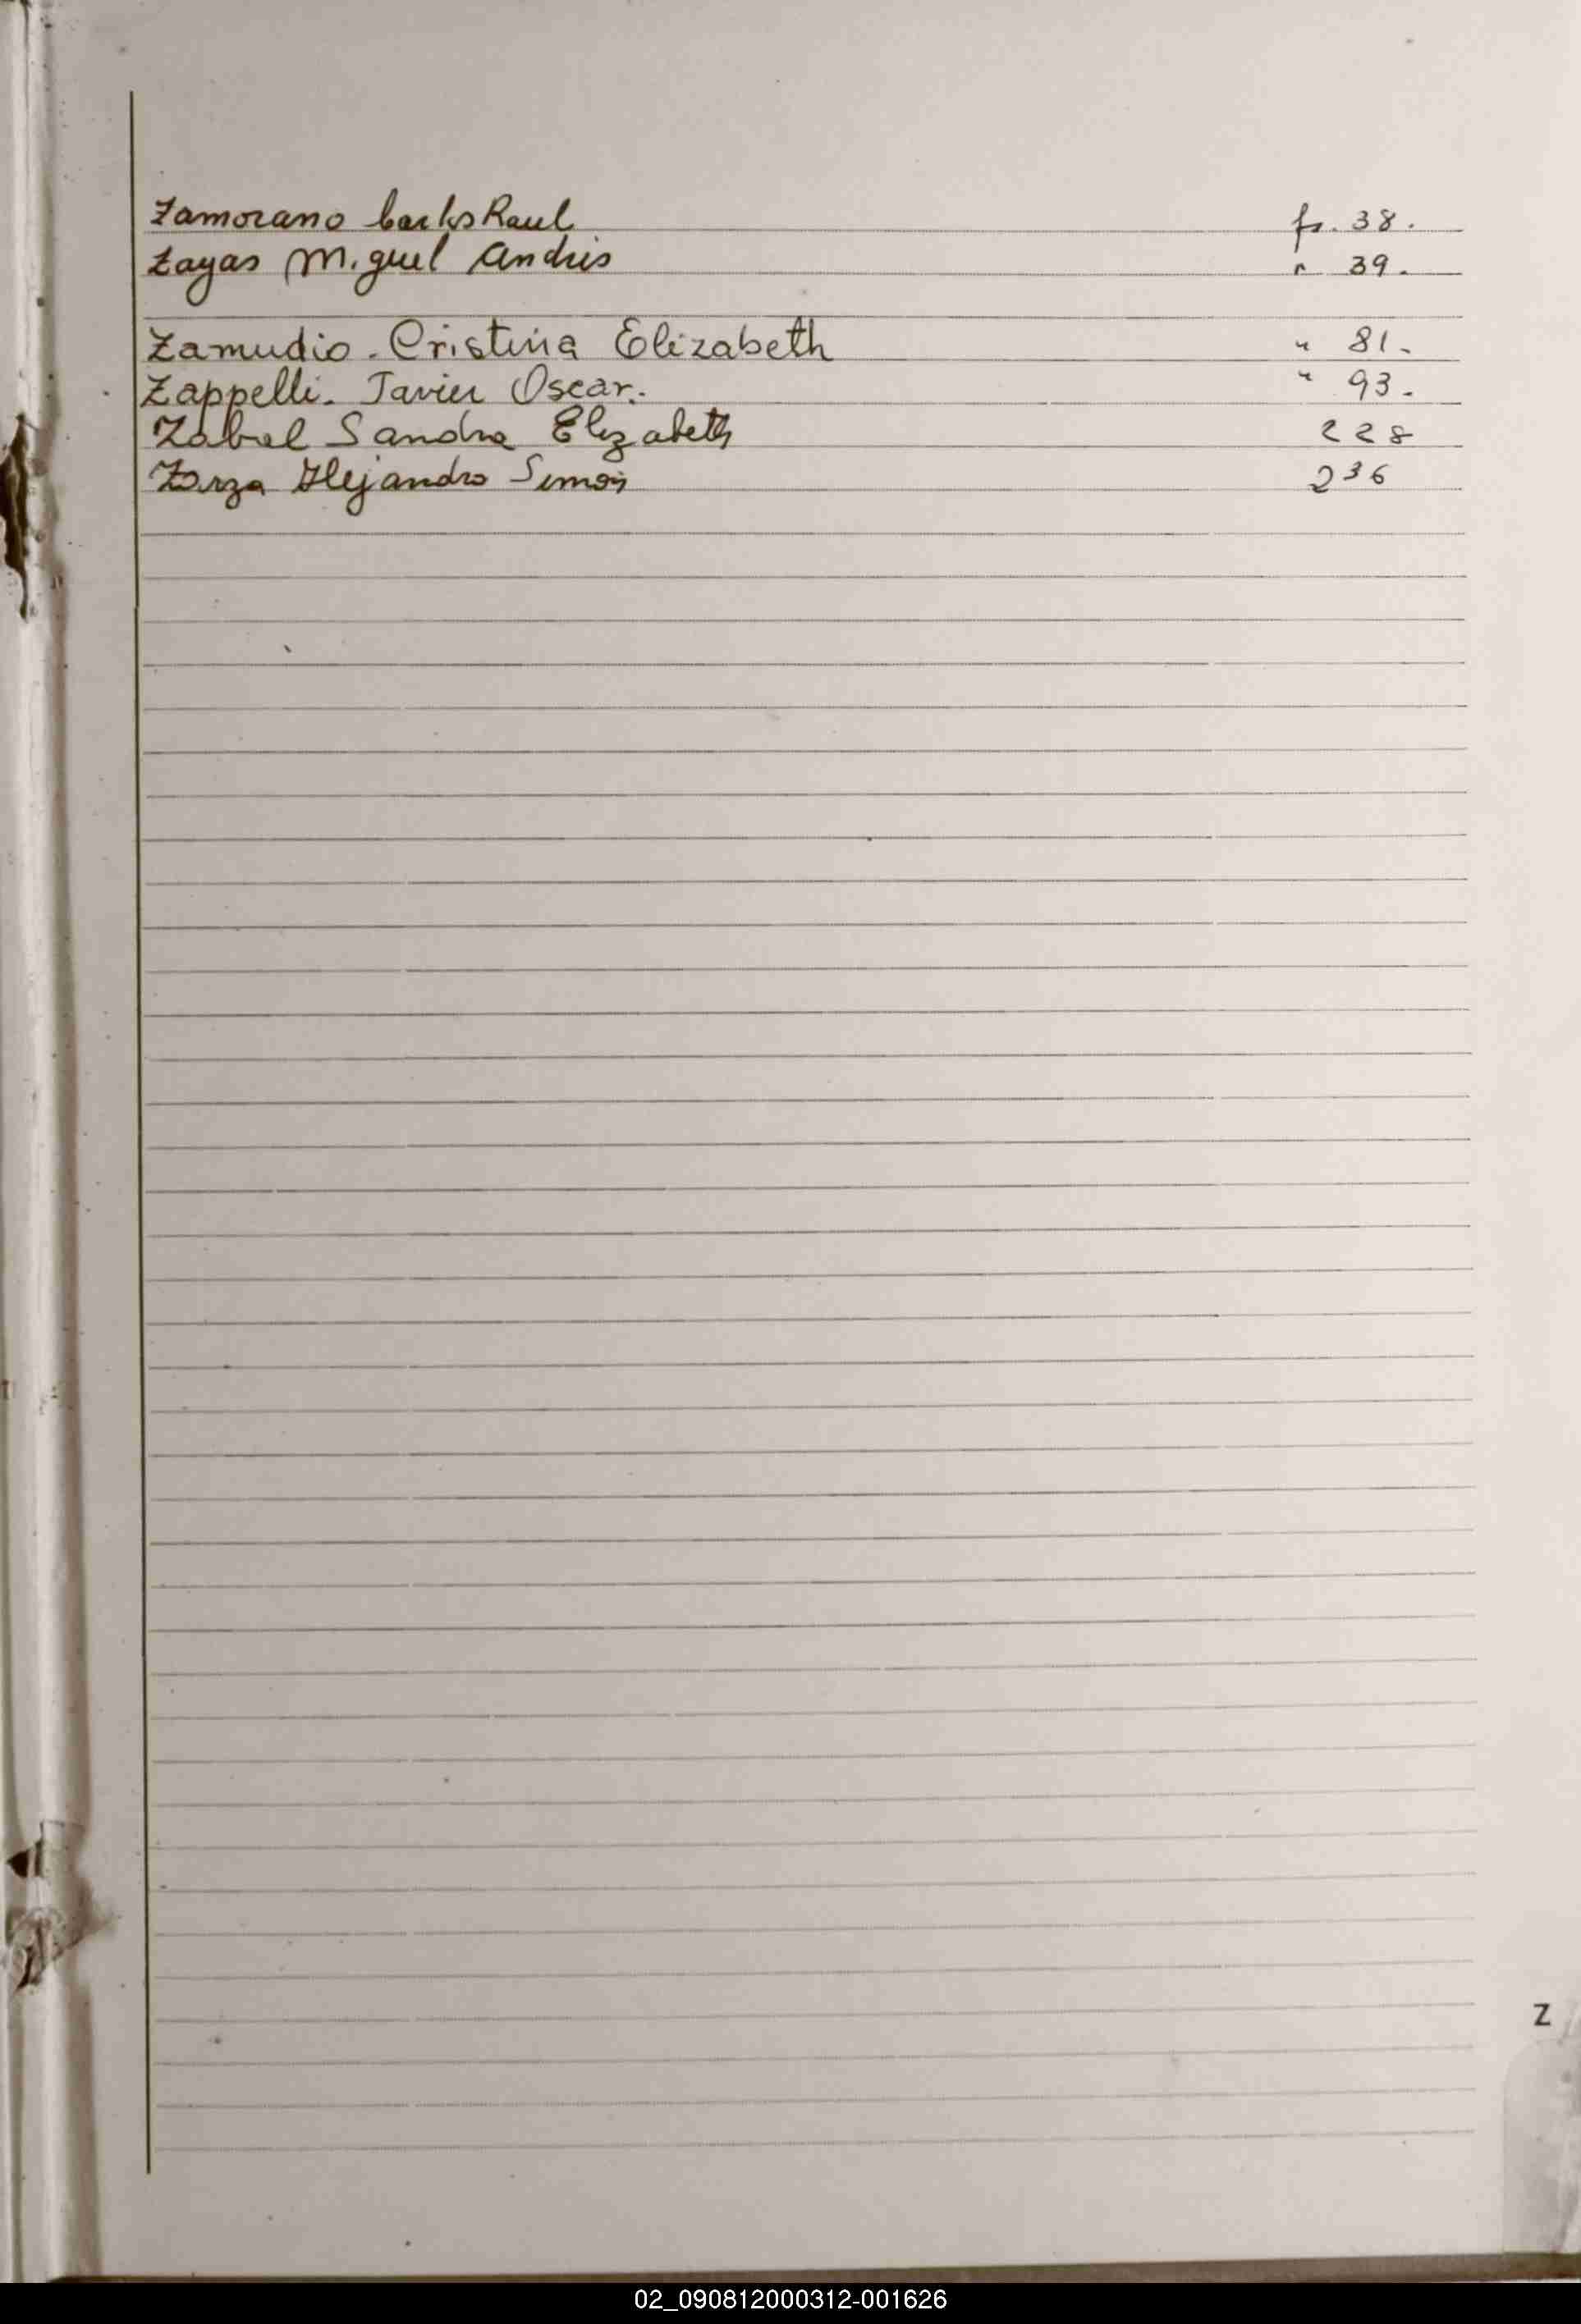 Zamorano Carlos Raul fs. 38.
Zayas Miguel Andrés " 39.
Zamudio. Cristina Elizabeth " 81.
Zappelli. Javier Oscar. " 93.
Zabal Sandra Elizabeth 228
Zarza Alejandro Simón 236
Z
02_090812000312-001626